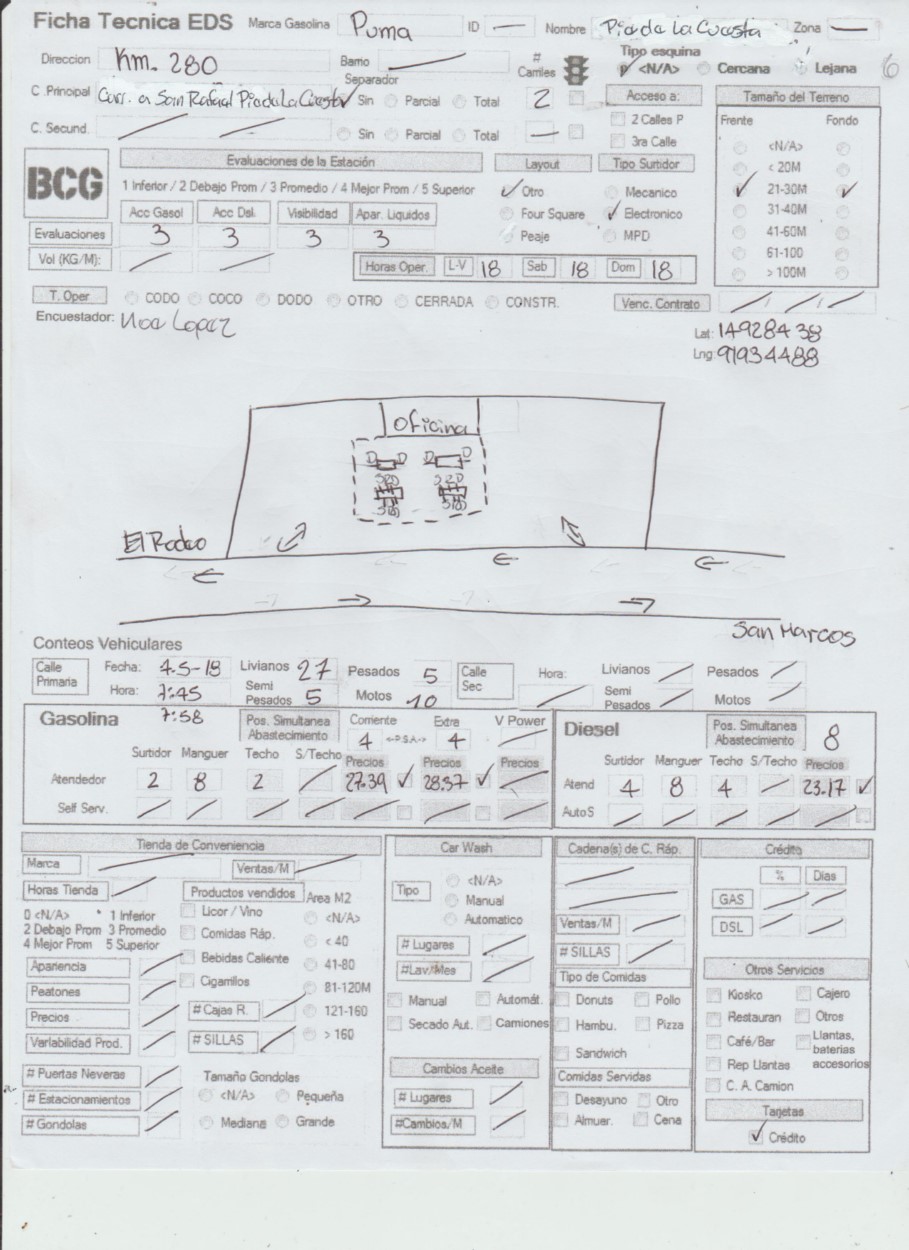 Ficha Tecnica EDS Marca Gasolina Puma ID — Nombre Pie de La Cuesta Zona —
Direccion Km. 280 Barrio # Carriles Tipo esquina <N/A> Cercana Lejana 6
Separador
C .Principal Carr. a San Rafael Pie de La Cuesta Sin Parcial Total 2 Acceso a: Tamaño del Terreno
C. Secund. Sin Parcial Total — 2 Calles P Frente Fondo
3ra Calle <N/A>
BCG Evaluaciones de la Estación Layout Tipo Surtidor < 20M
1 Inferior / 2 Debajo Prom / 3 Promedio / 4 Mejor Prom / 5 Superior Otro Mecanico 21-30M
Acc Gasol Acc Dsl. Visibilidad Apar. Liquidos Four Square Electronico 31-40M
Evaluaciones 3 3 3 3 Peaje MPD 41-60M
Vol (KG/M): Horas Oper. L-V 18 Sab 18 Dom 18 61-100
> 100M
T. Oper CODO COCO DODO OTRO CERRADA CONSTR. Venc. Contrato
Encuestador: Lopez
Lat: 14928438
Lng: 91934488
Oficina
D D D D
El Rodeo
San Marcos
Conteos Vehiculares
Calle Primaria Fecha: 4-5-18 Livianos 27 Pesados 5 Calle Sec Hora: Livianos Pesados
Hora: 7:45 Semi Pesados 5 Motos 10 Semi Pesados Motos
7:58
Gasolina Pos. Simultanea Abastecimiento Corriente 4 <-P.S.A-> Extra 4 V Power Diesel Pos. Simultanea Abastecimiento 8
Surtidor Manguer Techo S/Techo Precios Precios Precios Surtidor Manguer Techo S/Techo Precios
Atendedor 2 8 2 27.39 28.37 Atend 4 8 4 23.17
Self Serv. Auto S
Tienda de Conveniencia Car Wash Cadena(s) de C. Ráp. Crédito
Marca Ventas/M % Dias
Horas Tienda Productos vendidos Area M2 Tipo <N/A> GAS
0 <N/A> * 1 Inferior Licor / Vino <N/A> Manual Ventas/M DSL
2 Debajo Prom 3 Promedio Comidas Ráp. < 40 Automatico
4 Mejor Prom 5 Superior Bebidas Caliente 41-80 # Lugares # SILLAS
Apariencia Cigarrillos 81-120M #Lav/Mes Tipo de Comidas Otros Servicios
Peatones # Cajas R. 121-160 Manual Automát. Donuts Pollo Kiosko Cajero
Precios # SILLAS > 160 Secado Aut. Camiones Hambu. Pizza Restauran Otros
Variabilidad Prod. Sandwich Café/Bar Llantas, baterias accesorios
# Puertas Neveras Tamaño Gondolas Cambios Aceite Comidas Servidas Rep Llantas
# Estacionamientos <N/A> Pequeña # Lugares Desayuno Otro C. A. Camion
# Gondolas Mediana Grande #Cambios/M Almuer. Cena Tarjetas
Crédito